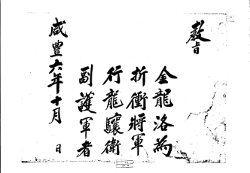 教旨
金龍洛為
折衝將軍
行龍驤衛
副護軍者
咸豊六年十月 日